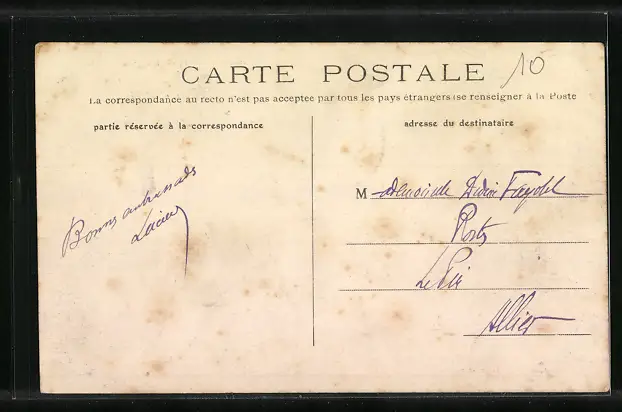 CARTE POSTALE
10
La correspondance au recto n'est pas acceptée par tous les pays étrangers (se renseigner à la Poste
partie réservée à la correspondance
adresse du destinataire
Bonnes embrassades
Lucien
Mademoiselle
Postes
Le
Allier